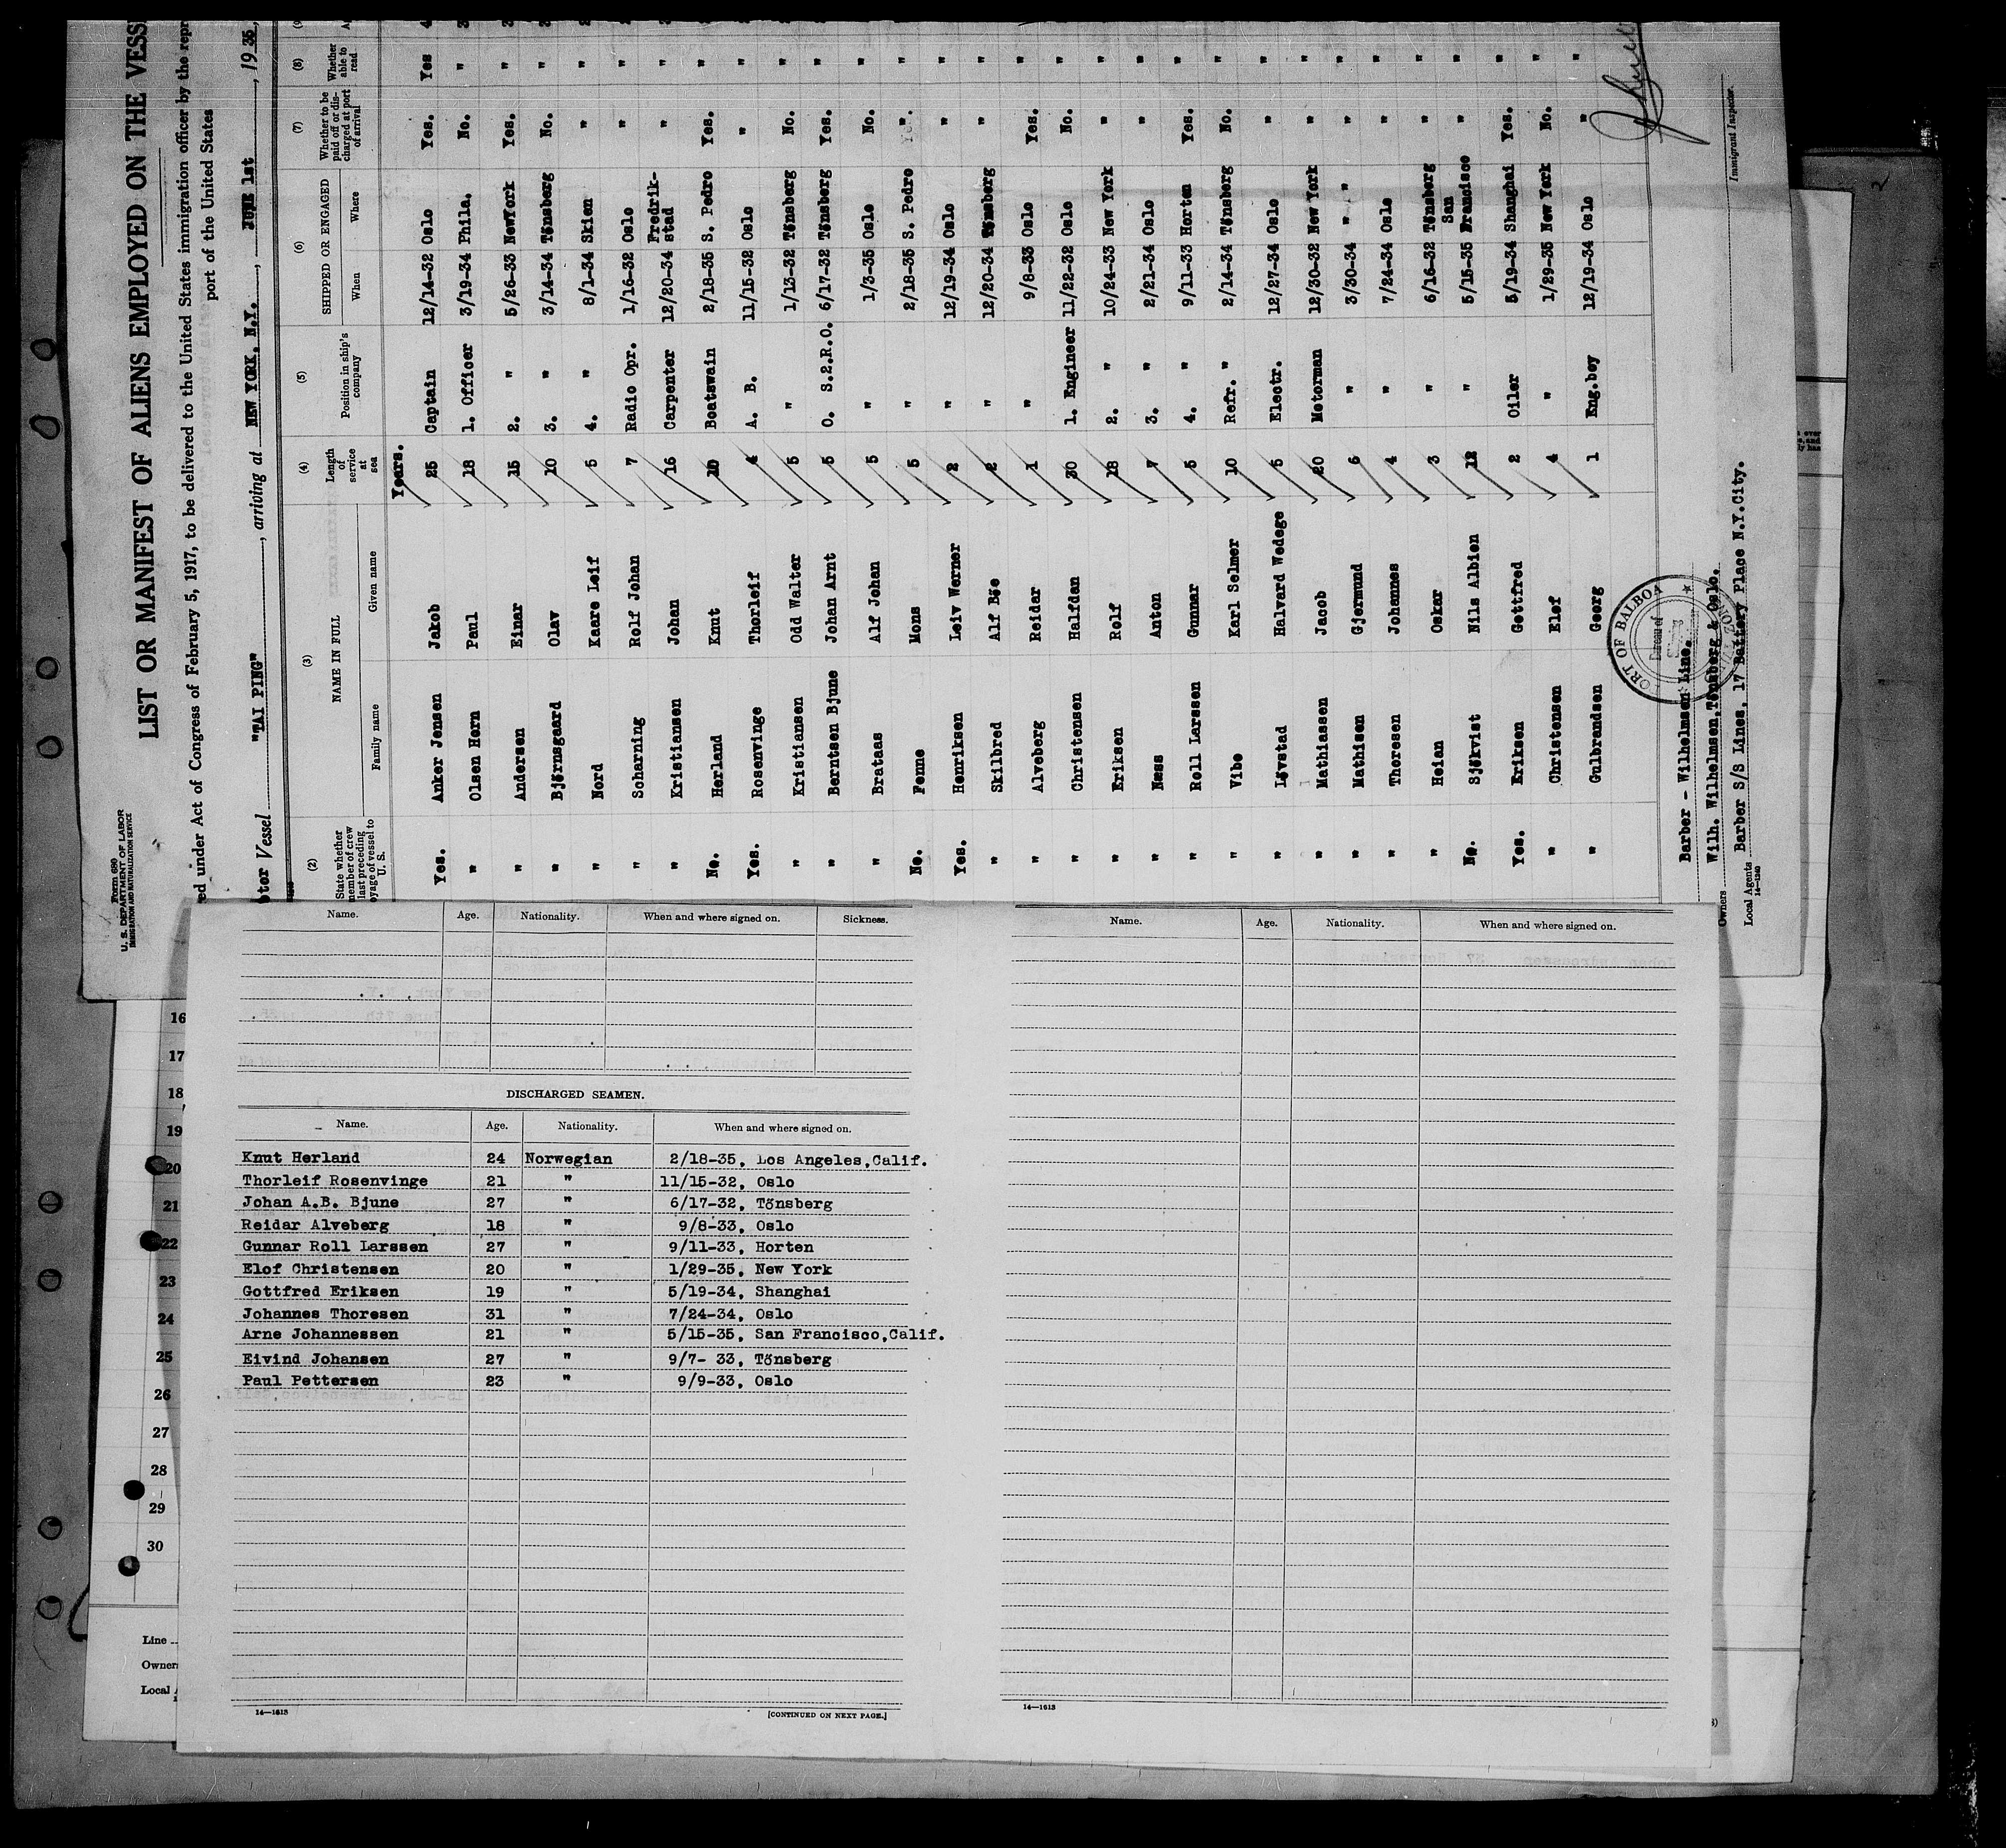 Form 680
U. S. DEPARTMENT OF LABOR
IMMIGRATION AND NATURALIZATION SERVICE
LIST OR MANIFEST OF ALIENS EMPLOYED ON THE VESS
ed under Act of Congress of February 5, 1917, to be delivered to the United States immigration officer by the repr
port of the United States
otor Vessel "TAI PING", arriving at NEW YORK, N.Y., JUNE 1st, 1935,
(2) (3) (4) (5) (6) (7) (8)
State whether member of crew last preceding voyage of vessel to U. S.
NAME IN FULL
Family name Given name
Length of service at sea
Position in ship's company
SHIPPED OR ENGAGED
When Where
Whether to be paid off or discharged at port of arrival
Whether able to read
Years.
Yes. Anker Jensen Jakob 25 Captain 12/14-32 Oslo Yes. Yes
" Olsen Horn Paul 18 1. Officer 3/19-34 Phila. No. "
" Andersen Einar 15 2. " 5/26-33 NewYork Yes. "
" Björnsgaard Olav 10 3. " 3/14-34 Tönsberg No. "
" Nord Kaare Leif 5 4. " 8/1-34 Skien " "
" Scharning Rolf Johan 7 Radio Opr. 1/16-32 Oslo " "
" Kristiansen Johan 16 Carpenter 12/20-34 Fredrik-stad " "
No. Herland Knut 10 Boatswain 2/18-35 S. Pedro Yes. "
Yes. Rosenvinge Thorleif 4 A. B. 11/15-32 Oslo " "
" Kristiansen Odd Walter 5 " 1/13-32 Tönsberg No. "
" Berntsen Bjune Johan Arnt 5 O. S.2.R.O. 6/17-32 Tönsberg Yes. "
" Brataas Alf Johan 5 " 1/3-35 Oslo No. "
No. Fenne Mons 5 " 2/18-35 S. Pedro " "
Yes. Henriksen Leiv Werner 2 " 12/19-34 Oslo " "
" Skilbred Alf Böe 2 " 12/20-34 Tönsberg " "
" Alveberg Reidar 1 " 9/8-33 Oslo Yes. "
" Christensen Halfdan 30 1. Engineer 11/22-32 Oslo No. "
" Eriksen Rolf 18 2. " 10/24-33 New York " "
" Næss Anton 7 3. " 2/21-34 Oslo " "
" Roll Larssen Gunnar 5 4. " 9/11-33 Horten Yes. "
" Vibe Karl Selmer 10 Refr. " 2/14-34 Tönsberg No. "
" Lövstad Halvard Wedege 5 Electr. 12/27-34 Oslo " "
" Mathiassen Jacob 20 Motorman 12/30-32 New York " "
" Mathisen Gjermund 6 " 3/30-34 " " " "
" Thoresen Johannes 4 " 7/24-34 Oslo " "
" Heian Oskar 3 " 6/16-32 Tönsberg " "
No. Sjökvist Nils Albion 12 " 5/15-35 San Francisco " "
Yes. Eriksen Gottfred 2 Oiler 5/19-34 Shanghai Yes. "
" Christensen Elof 4 " 1/29-35 New York No. "
" Gulbrandsen Georg 1 Eng.boy 12/19-34 Oslo " "
PORT OF BALBOA
Bureau of
Barber - Wilhelmsen Line.
Owners Wilh. Wilhelmsen, Tönsberg & Oslo.
Local Agents Barber S/S Lines, 17 Battery Place N.Y.City.
14—1240
Immigrant Inspector.
16
17
18
19
20
21
22
23
24
25
26
27
28
29
30
Line
Owner
Local
Name. Age. Nationality. When and where signed on. Sickness.
DISCHARGED SEAMEN.
Name. Age. Nationality. When and where signed on.
Knut Herland 24 Norwegian 2/18-35, Los Angeles,Calif.
Thorleif Rosenvinge 21 " 11/15-32, Oslo
Johan A.B. Bjune 27 " 6/17-32, Tönsberg
Reidar Alveberg 18 " 9/8-33, Oslo
Gunnar Roll Larssen 27 " 9/11-33, Horten
Elof Christensen 20 " 1/29-35, New York
Gottfred Eriksen 19 " 5/19-34, Shanghai
Johannes Thoresen 31 " 7/24-34, Oslo
Arne Johannessen 21 " 5/15-35, San Francisco,Calif.
Eivind Johansen 27 " 9/7- 33, Tönsberg
Paul Pettersen 23 " 9/9-33, Oslo
14—1613
[CONTINUED ON NEXT PAGE.]
Name. Age. Nationality. When and where signed on.
14—1613